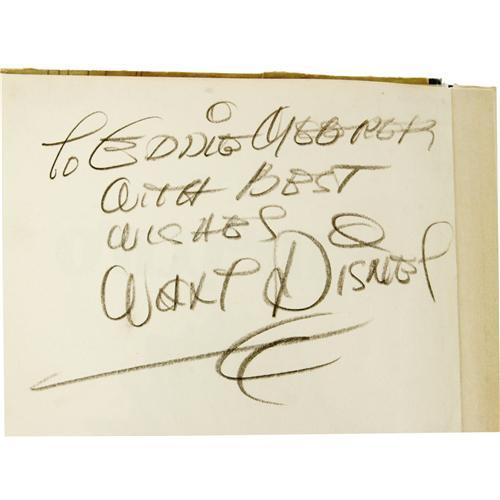 To EDDIE MEEKER
WITH BEST
WISHES
WALT DISNEY